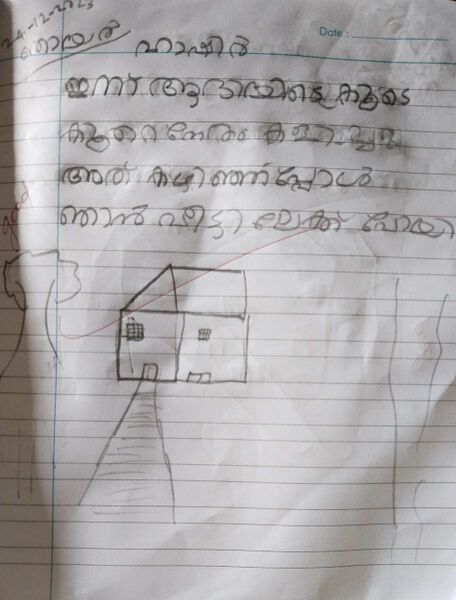 24-12-2023
Date :
ഞായർ ഹാഷിർ
ഇന്ന് ആദായിടെ കൂടെ
കുറെ നേരം കളിച്ചു
അത് കഴിഞ്ഞപ്പോൾ
ഞാൻ വീട്ടി ലേക്ക് പോയി
good